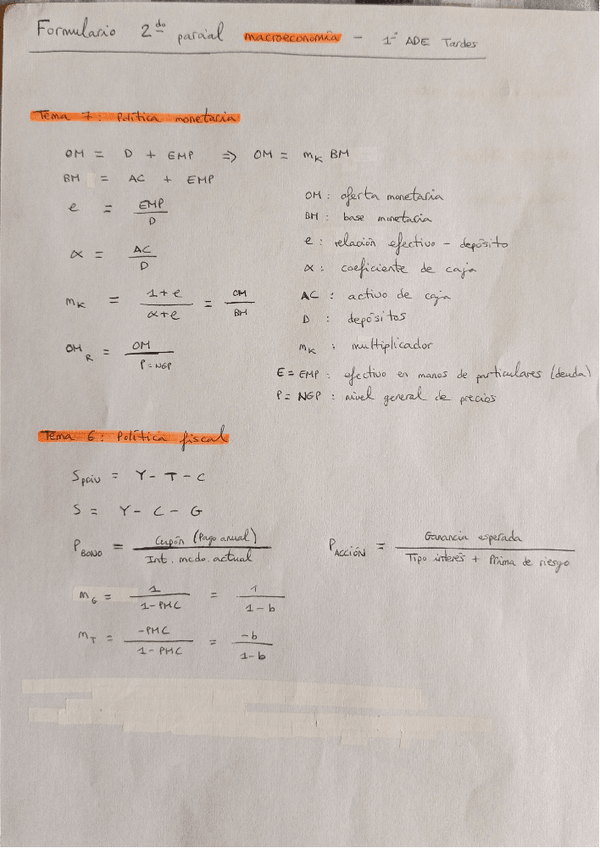 Formulario 2do parcial macroeconomía - 1º ADE Tardes
Tema 7: Política monetaria
OM = D + EMP => OM = mK BM
BM = AC + EMP
e = EMP / D
α = AC / D
mK = 1+e / α+e = OM / BM
OMR = OM / P=NGP
OM: oferta monetaria
BM: base monetaria
e: relación efectivo - depósito
α: coeficiente de caja
AC: activo de caja
D: depósitos
mK: multiplicador
E = EMP: efectivo en manos de particulares (deuda)
P = NGP: nivel general de precios
Tema 6: Política fiscal
Spriv = Y - T - C
S = Y - C - G
PBONO = Cupón (Pago anual) / Int. mcdo. actual
PACCIÓN = Ganancia esperada / Tipo interés + Prima de riesgo
mG = 1 / 1-PMC = 1 / 1-b
mT = -PMC / 1-PMC = -b / 1-b